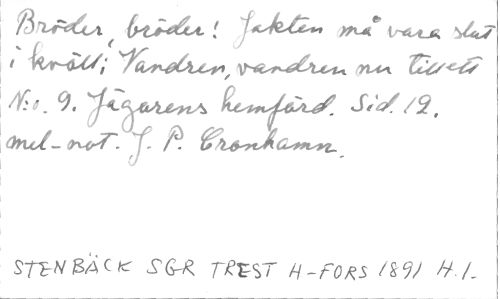 Bröder, bröder! Jakten må vara slut
i kväll; Vandren, vandren nu tillsett
N:o. 9. Jägarens hemfärd. Sid. 12.
mel-not. J. P. Cronhamn.
STENBÄCK SGR TREST H-FORS 1891 H.1.